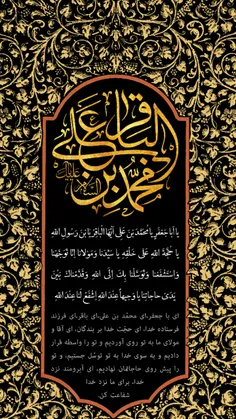 محمد بن علی الباقر
علیه السلام
یا أبا جعفر یا محمد بن علی أیها الباقر یابن رسول الله
یا حجة الله علی خلقه یا سیدنا و مولانا إنا توجهنا
واستشفعنا وتوسلنا بك إلی الله وقدمناك بین
یدی حاجاتنا یا وجیها عند الله إشفع لنا عند الله
ای با جعفر،ای محمد بن علی،ای باقر،ای فرزند
فرستاده خدا، ای حجّت خدا بر بندگان، ای آقا و
مولای ما به تو روی آوردیم و تو را واسطه قرار
دادیم و به سوی خدا به تو توسّل جستیم، و تو
را پیش روی حاجاتمان نهادیم، ای آبرومند نزد
خدا، برای ما نزد خدا
شفاعت کن.